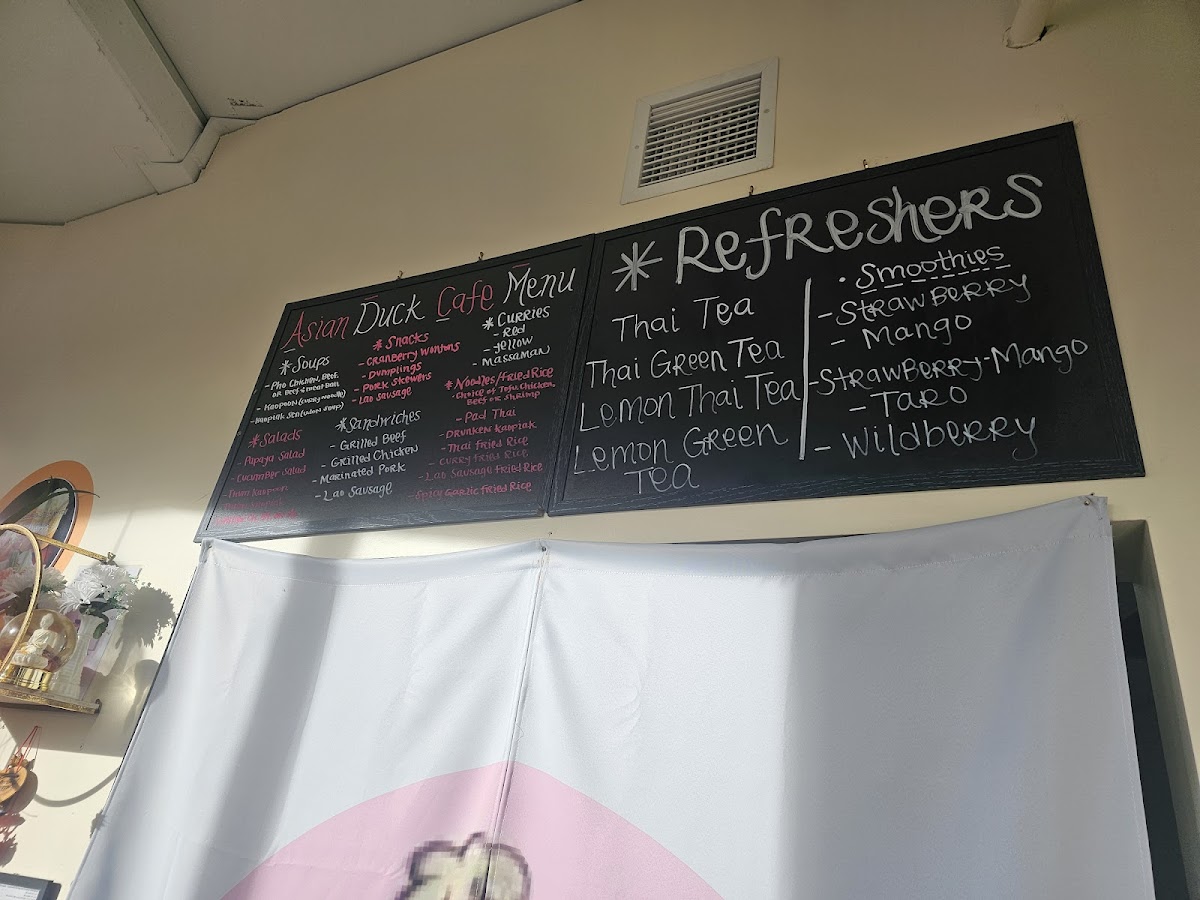 Asian Duck Cafe Menu
*Soups
- Pho Chicken, Beef,
or Beef & Meat Ball
- Kaopoon (curry noodle)
- Kaopiak Sen (udon soup)
*Salads
- Papaya Salad
- Cucumber Salad
- Thum Kaopoon
*Snacks
- Cranberry Wontons
- Dumplings
- Pork Skewers
- Lao Sausage
*Sandwiches
- Grilled Beef
- Grilled Chicken
- Marinated Pork
- Lao Sausage
*Curries
- Red
- Yellow
- Massaman
*Noodles/Fried Rice
- Choice of Tofu, Chicken,
Beef or Shrimp
- Pad Thai
- Drunken Kaopiak
- Thai Fried Rice
- Curry Fried Rice
- Lao Sausage Fried Rice
- Spicy Garlic Fried Rice
* Refreshers
Thai Tea
Thai Green Tea
Lemon Thai Tea
Lemon Green
Tea
• Smoothies
- Strawberry
- Mango
- Strawberry-Mango
- Taro
- Wildberry